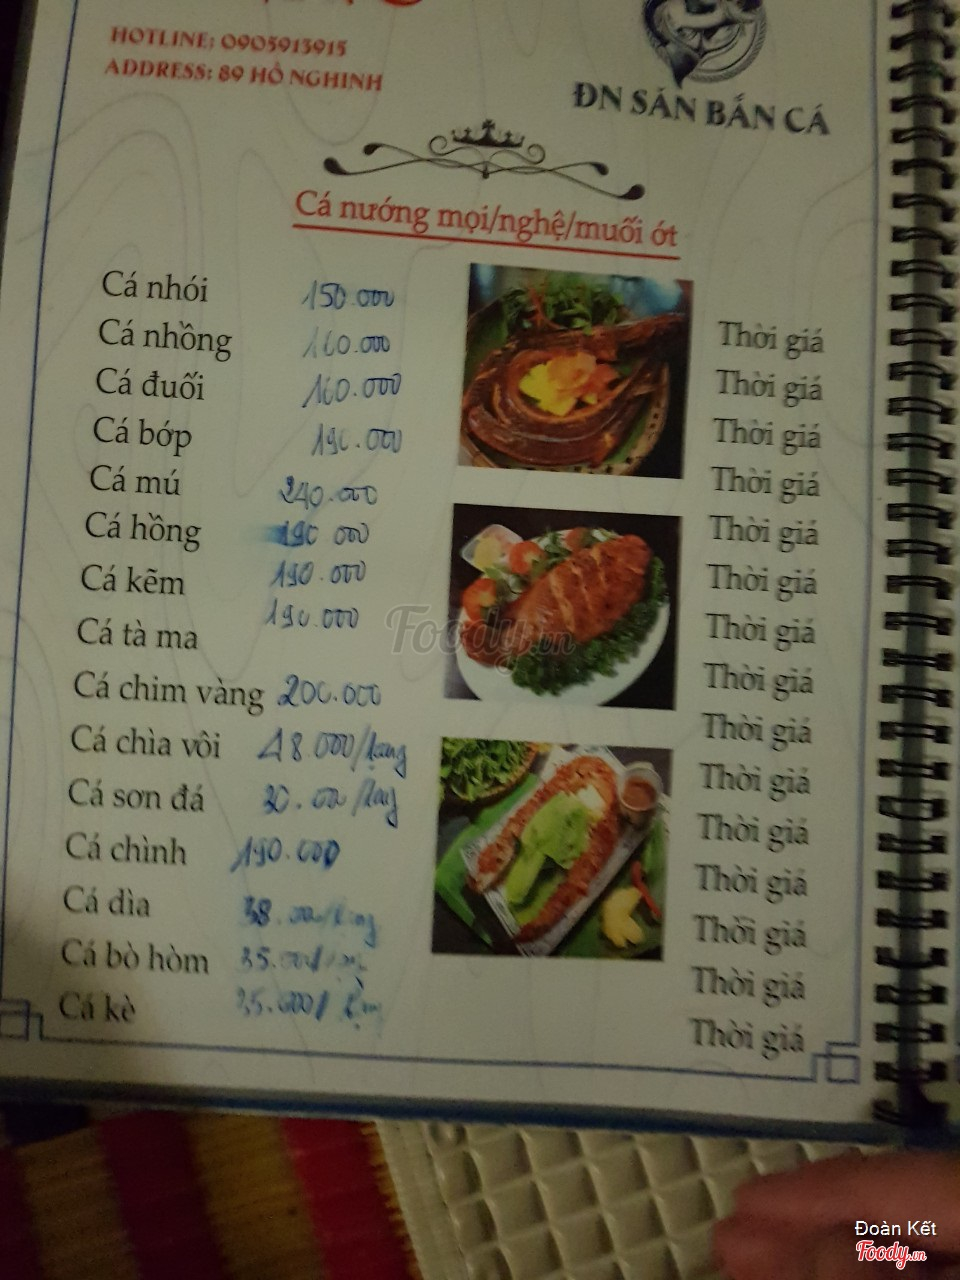 HOTLINE: 0905913915
ADDRESS: 89 HỒ NGHINH
ĐN SĂN BẮN CÁ
Cá nướng mọi/nghệ/muối ớt
Cá nhói 150.000 Thời giá
Cá nhồng 160.000 Thời giá
Cá đuối 160.000 Thời giá
Cá bớp 190.000 Thời giá
Cá mú 240.000 Thời giá
Cá hồng 190 000 Thời giá
Cá kẽm 190.000 Thời giá
Cá tà ma 190.000 Thời giá
Cá chim vàng 200.000 Thời giá
Cá chìa vôi 48.000/lạng Thời giá
Cá sơn đá 30.000/lạng Thời giá
Cá chình 190.000 Thời giá
Cá dìa 38.000/lạng Thời giá
Cá bò hòm 35.000/ Thời giá
Cá kè Thời giá
Foody.vn
Đoàn Kết
Foody.vn